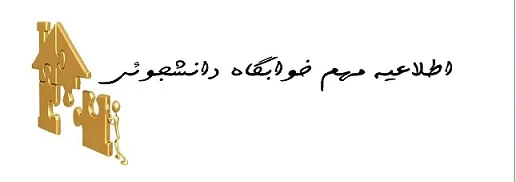 اطلاعیه مهم خوابگاه دانشجوئی